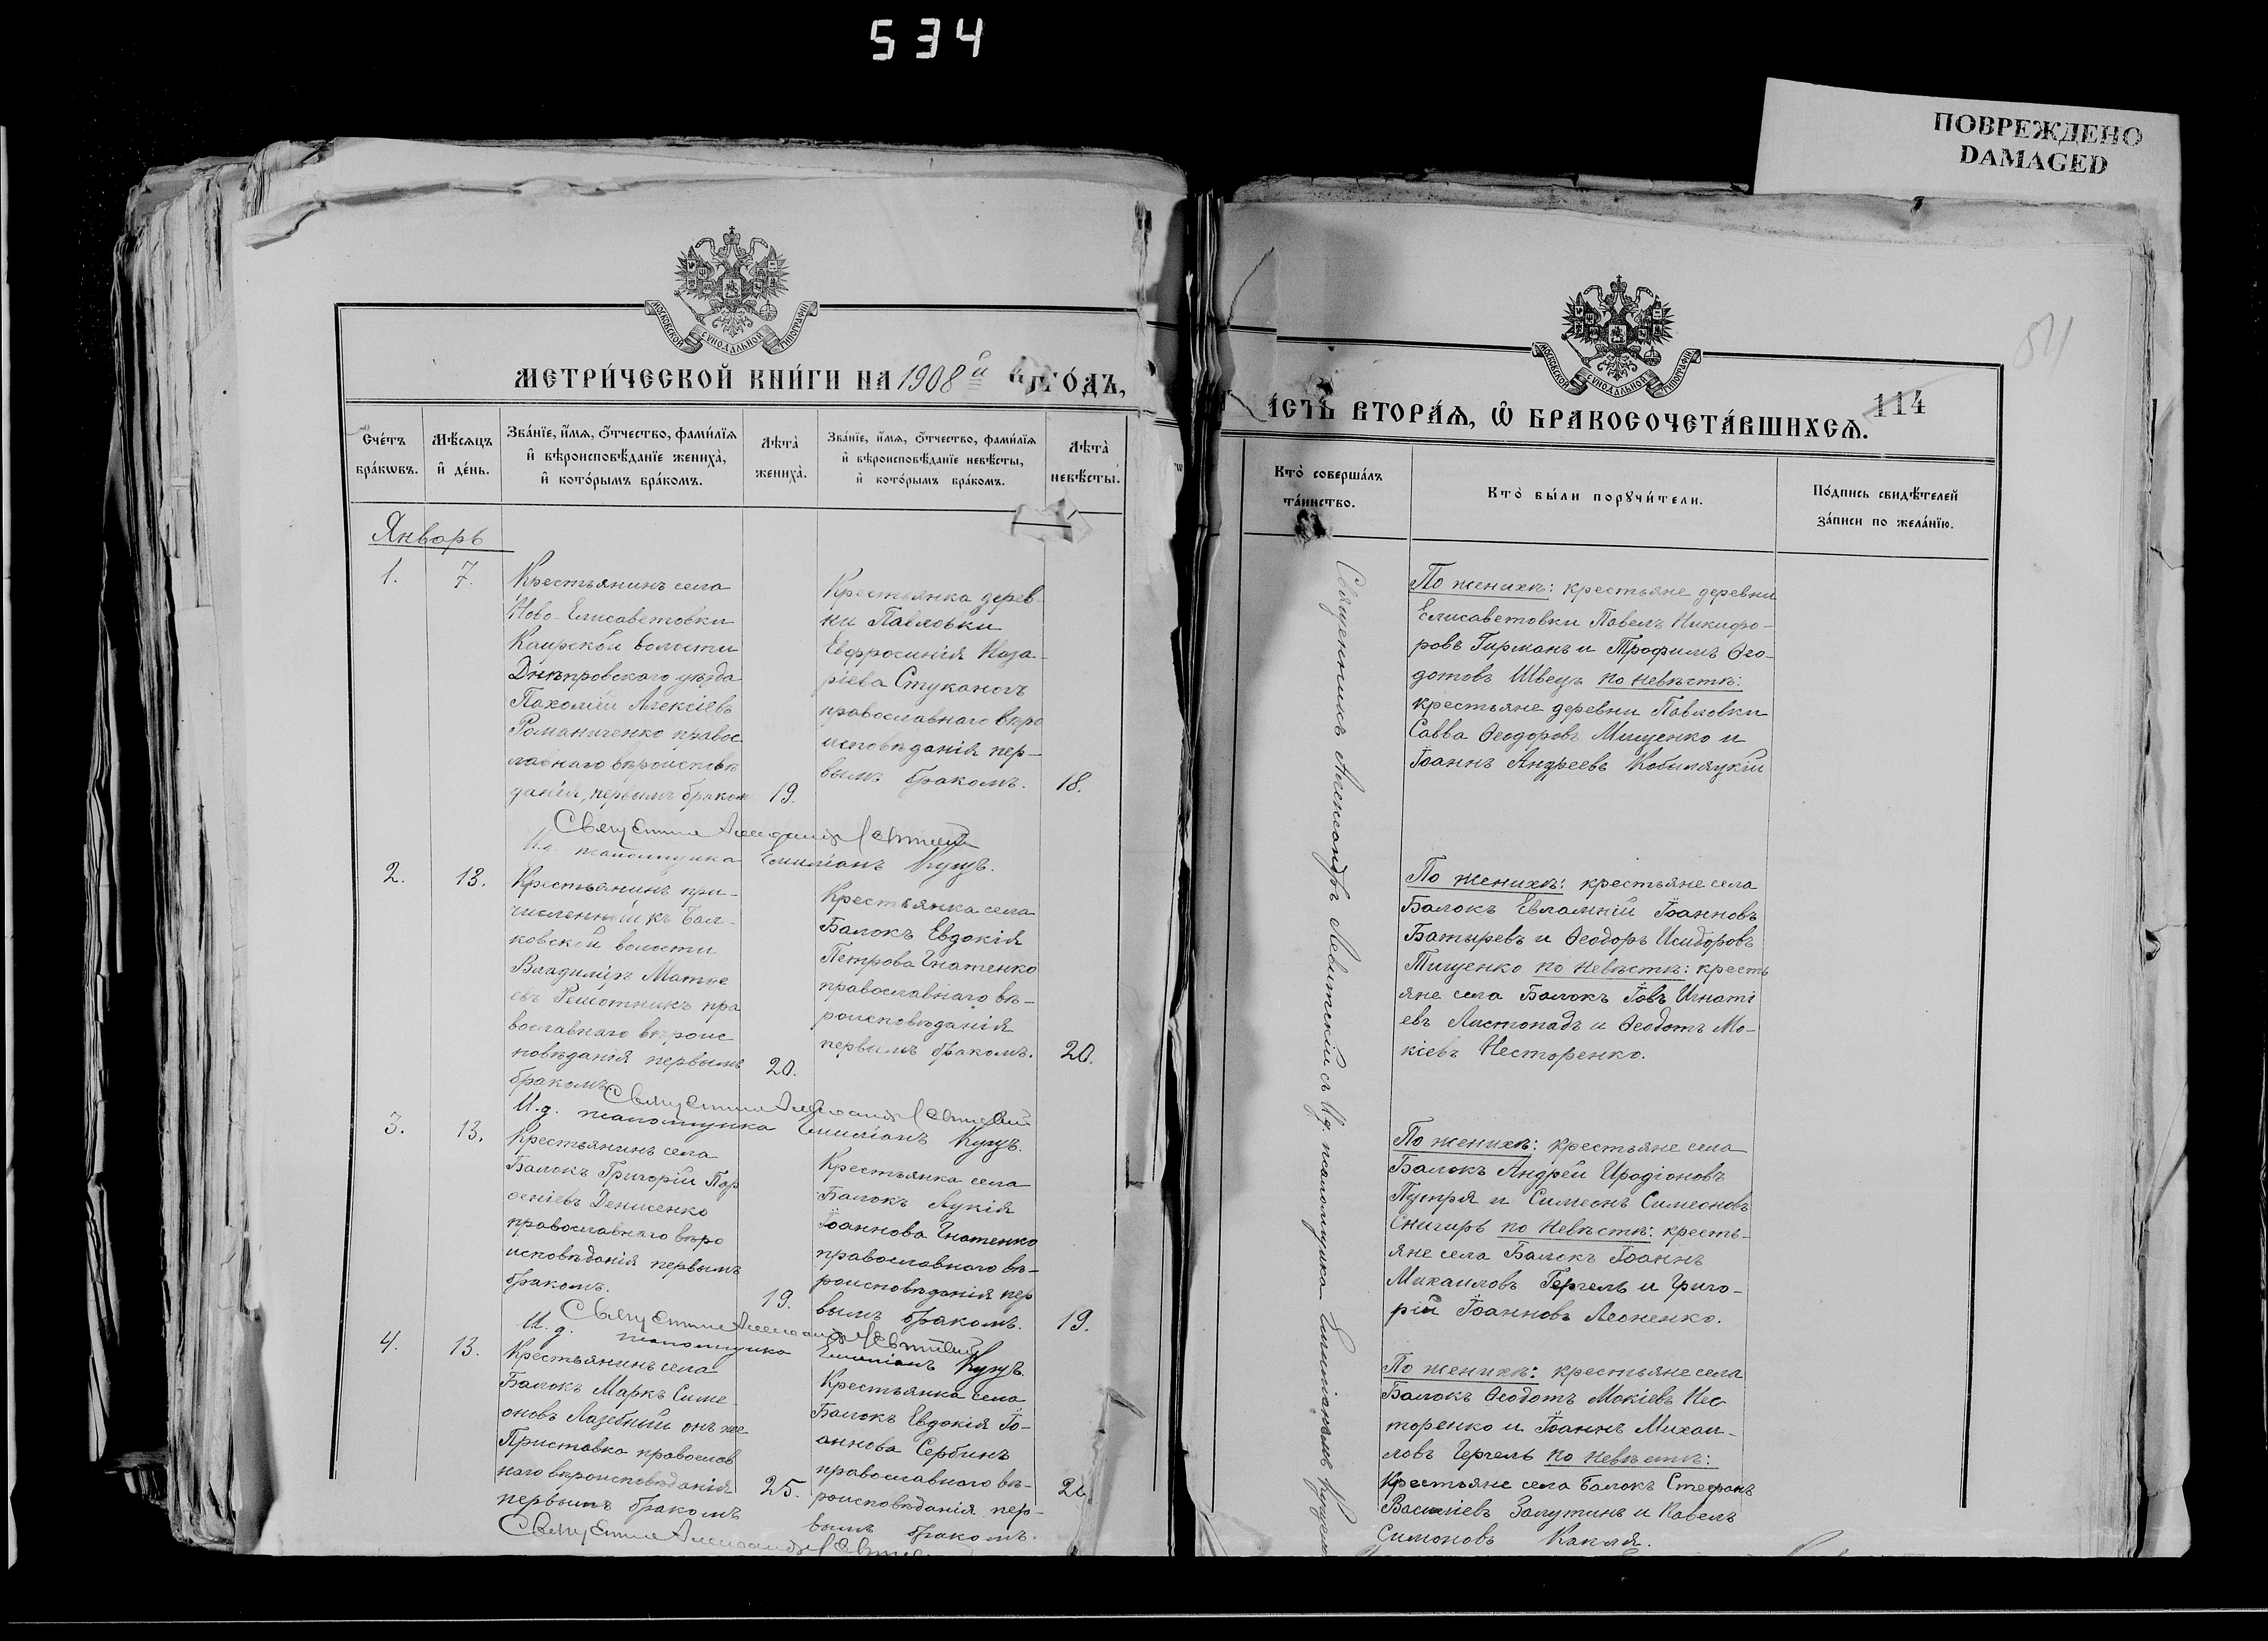 534
ПОВРЕЖДЕНО
DAMAGED
МОСКОВСКОЙ СУНОДАЛЬНОЙ ТИПОГРАФІИ
МЕТРИ́ЧЕСКОЙ КНИ́ГИ НА 1908й ГО́ДЪ,
Сче́тъ бра́кωвъ.
Мѣ́сяцъ и҆ де́нь.
Зва́нїе, и҆́мѧ, ѻ҆́тчество, фамѝлїѧ и҆ вѣроисповѣ́данїе жениха̀, и҆ кото́рымъ бра́комъ.
Лѣта̀ жениха̀.
Зва́нїе, и҆́мѧ, ѻ҆́тчество, фамѝлїѧ и҆ вѣроисповѣ́данїе невѣ́сты, и҆ кото́рымъ бра́комъ.
Лѣта̀ невѣ́сты.
Январь
1.
7.
Крестьянинъ села
Ново-Елисаветовки
Каирской волости
Днѣпровскаго уѣзда
Пахомій Алексіевъ
Романиченко правос
лавнаго вѣроисповѣ
данія, первымъ бракомъ
19.
Крестьянка дерев-
ни Павловки
Евфросинія Наза-
ріева Стуканогъ
православнаго вѣро
исповѣданія пер-
вымъ бракомъ.
18.
Священникъ Александръ Левитскій
И.д. псаломщика Емиліанъ Куцъ.
2.
13.
Крестьянинъ при-
численный къ Бал-
ковской волости
Владиміръ Матѳе
евъ Решотникъ пра
вославнаго вѣроис
повѣданія первымъ
бракомъ
20.
Крестьянка села
Балокъ Евдокія
Петрова Гнатенко
православнаго вѣ-
роисповѣданія
первымъ бракомъ.
20.
Священникъ Александръ Левитскій
И.д. псаломщика Емиліанъ Куцъ.
3.
13.
Крестьянинъ села
Балокъ Григорій Пар
ѳеніевъ Денисенко
православнаго вѣро
исповѣданія первымъ
бракомъ.
19.
Крестьянка села
Балокъ Лукія
Іоаннова Гнатенко
православнаго вѣ-
роисповѣданія пер
вымъ бракомъ.
19.
Священникъ Александръ Левитскій
И.д. псаломщика Емиліанъ Куцъ.
4.
13.
Крестьянинъ села
Балокъ Маркъ Симе-
оновъ Лазебный онъ же
Приставка православ
наго вѣроисповѣданія
первымъ бракомъ
25.
Крестьянка села
Балокъ Евдокія Іо-
аннова Сербинъ
православнаго вѣ-
роисповѣданія пер-
вымъ бракомъ.
Священникъ Александръ
МОСКОВСКОЙ СУНОДАЛЬНОЙ ТИПОГРАФІИ
511
ВТОРА́Я, Ѡ҆ БРАКОСОЧЕТА́ВШИХСЯ.
114
Кто̀ соверша́лъ та́инство.
Кто̀ бы́ли порꙋчи́тели.
По́дпись свидѣ́телей за́писи по жела́нїю.
Священникъ Александръ Левитскій съ И.д. псаломщика Емиліаномъ
По женихѣ: крестьяне деревни
Елисаветовки Павелъ Никифо-
ровъ Гирманъ и Трофимъ Ѳео-
дотовъ Швецъ по невѣстѣ:
крестьяне деревни Павловки
Савва Ѳеодоровъ Мищенко и
Іоаннъ Андреевъ Кобыляцкій
По женихѣ: крестьяне села
Балокъ Евлампій Іоанновъ
Батыревъ и Ѳеодоръ Исидоровъ
Тищенко по невѣстѣ: кресть
яне села Балокъ Іовъ Игнаті
евъ Листопадъ и Ѳеодотъ Мо-
кіевъ Несторенко.
По женихѣ: крестьяне села
Балокъ Андрей Иродіоновъ
и Симеонъ Симеоновъ
Снигирь по невѣстѣ: кресть-
яне села Балокъ Іоаннъ
Михаиловъ Гергель и Григо-
рій Іоанновъ Леоненко.
По женихѣ: крестьяне села
Балокъ Ѳеодотъ Мокіевъ Нес
торенко и Іоаннъ Михаи-
ловъ Гергель по невѣстѣ:
крестьяне села Балокъ Стефанъ
Василіевъ Залутинъ и Павелъ
Симоновъ Какля.